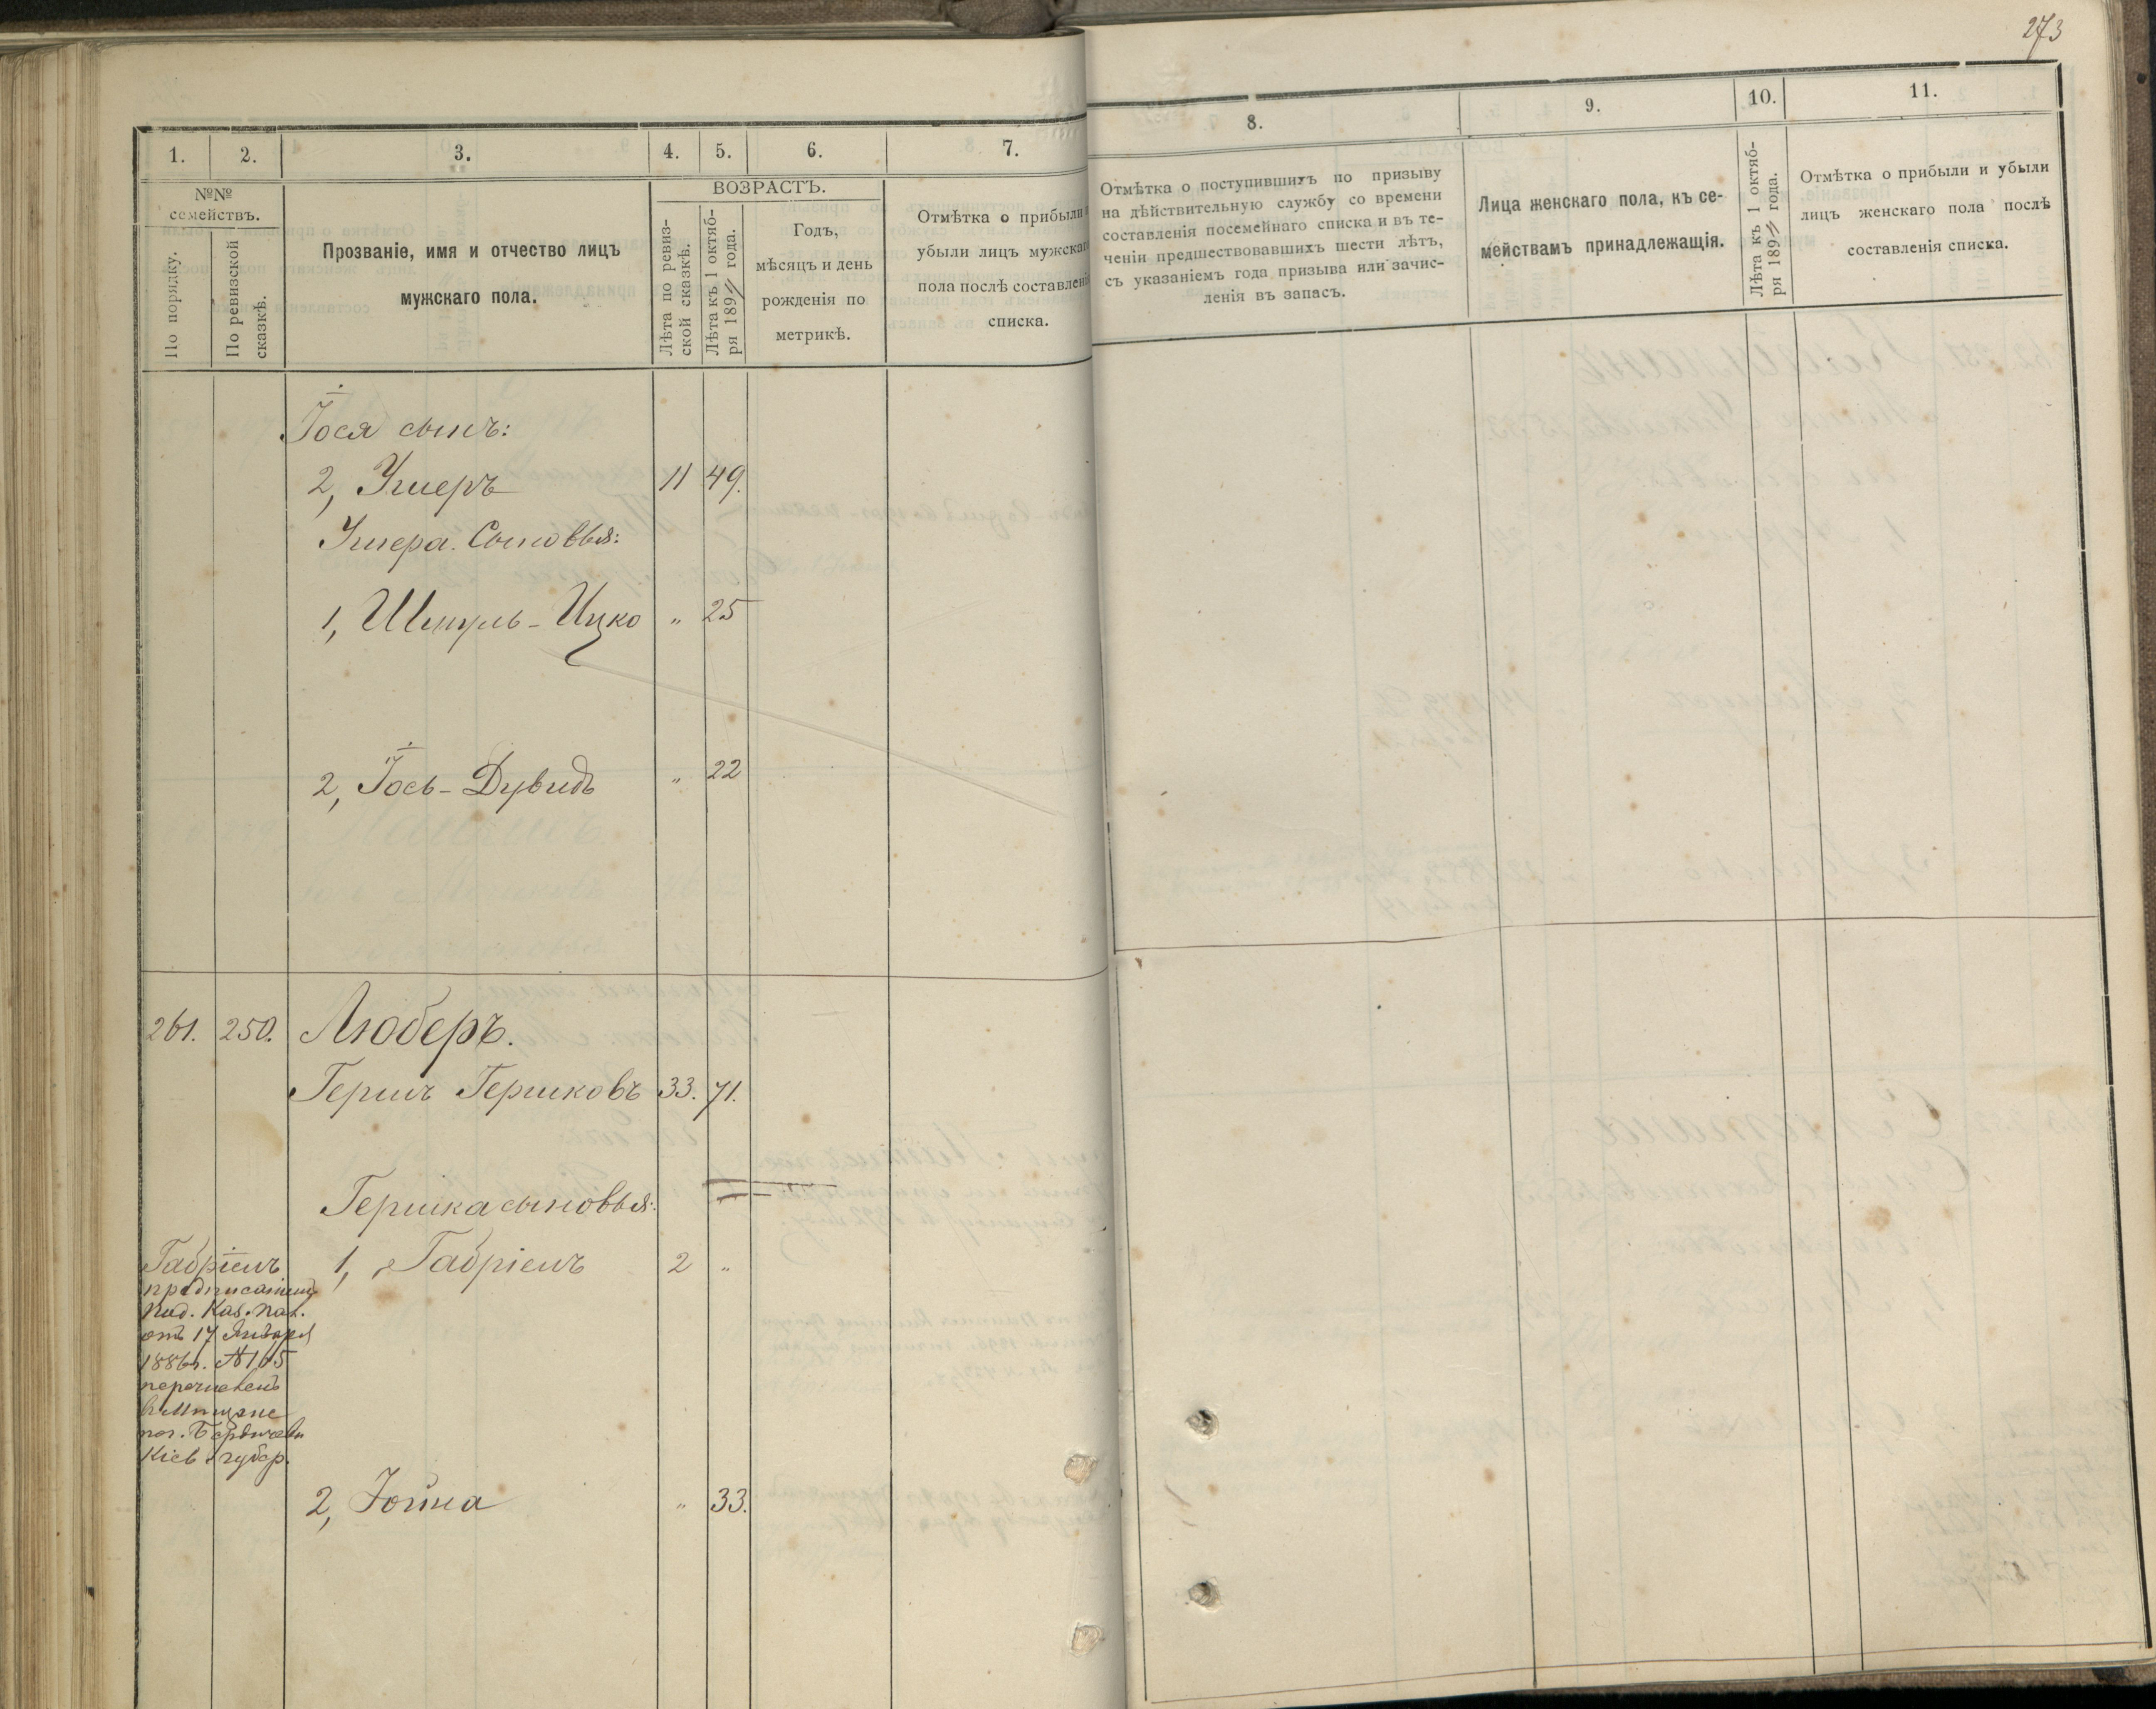 273
1. 2. 3. 4. 5. 6. 7.
8. 9. 10. 11.
№№
семействъ.
По порядку.
По ревизской
сказкѣ.
Прозваніе, имя и отчество лицъ
мужскаго пола.
ВОЗРАСТЪ.
Лѣта по ревиз-
ской сказкѣ.
Лѣта къ 1 октяб-
ря 189 года.
Годъ,
мѣсяцъ и день
рожденія по
метрикѣ.
Отмѣтка о прибыли
убыли лицъ мужскаг
пола послѣ составлені
списка.
Отмѣтка о поступившихъ по призыву
на дѣйствительную службу со времени
составленія посемейнаго списка и въ те-
ченіи предшествовавшихъ шести лѣтъ,
съ указаніемъ года призыва или зачис-
ленія въ запасъ.
Лица женскаго пола, къ се-
мействамъ принадлежащія.
Лѣта къ 1 октяб-
ря 189 года.
Отмѣтка о прибыли и убыли
лицъ женскаго пола послѣ
составленія списка.
Іося сынъ:
2, Ушеръ 11 49.
Ушера Сыновья:
1, Шмуль-Ицко „ 25
2, Іось-Дувидъ „ 22
261. 250. Люберъ.
Гершъ Гершковъ 33. 71.
Гершка сыновья:
1, Габріель 2 „
Габріель
предписаніемъ
под. Каз. пал.
отъ 17 Января
1886г. №105
перечисленъ
въ мѣщане
гор. Бердичева
Кіев. губер.
2, Іойна „ 33.